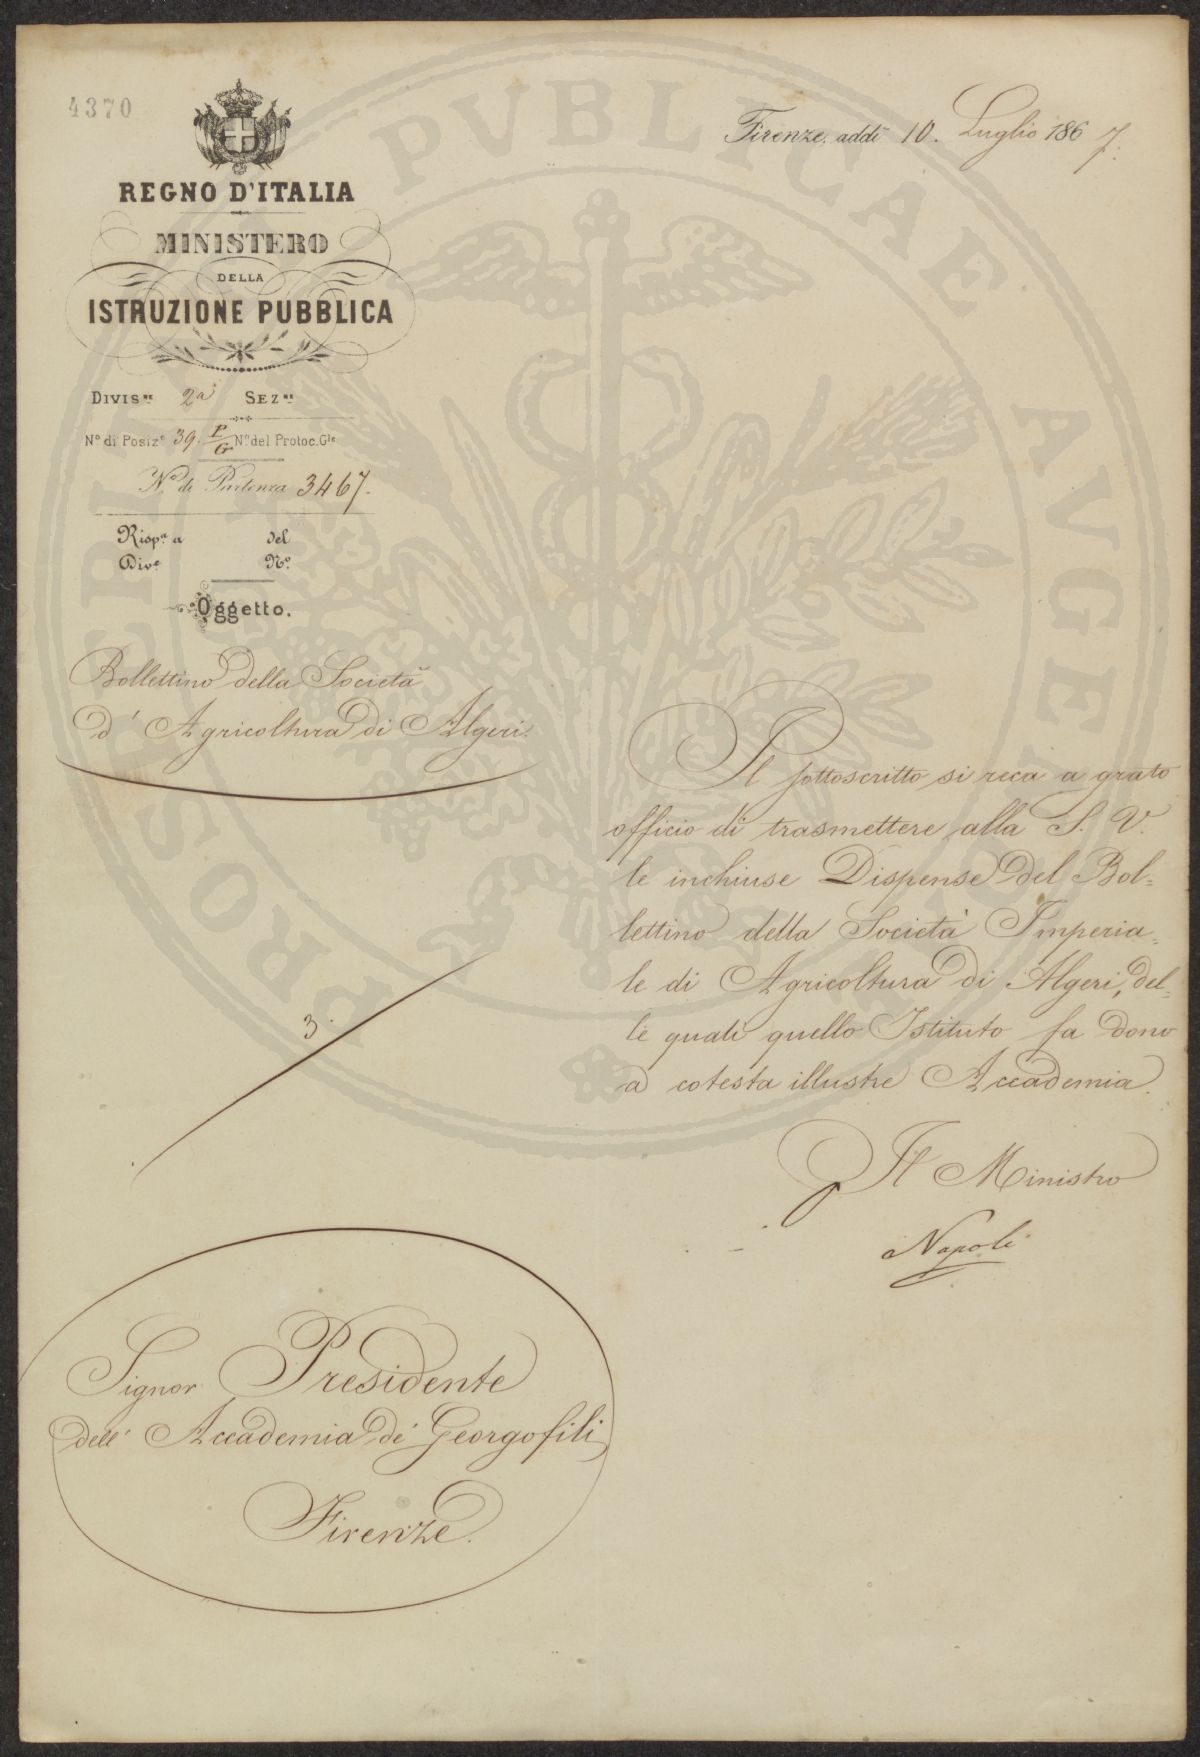 4370
REGNO D'ITALIA
MINISTERO
DELLA
ISTRUZIONE PUBBLICA
Divis.ne 2a Sez.ne
No di Posize 39. P/G No del Protoc. Gle
No di Partenza 3467.
Rispa a del
Dive No.
Oggetto.
Bollettino della Società
d'Agricoltura di Algeri.
3.
Firenze, addì 10. Luglio 1867.
Il sottoscritto si reca a grato
officio di trasmettere alla S. V.
le inchiuse Dispense del Bol=
lettino della Società Imperia=
le di Agricoltura di Algeri, del=
le quali quello Istituto fa dono
a cotesta illustre Accademia.
Il Ministro
Napoli
Signor Presidente
dell'Accademia de' Georgofili
Firenze.
PROSPERITATI PVBLICAE AVGENDAE